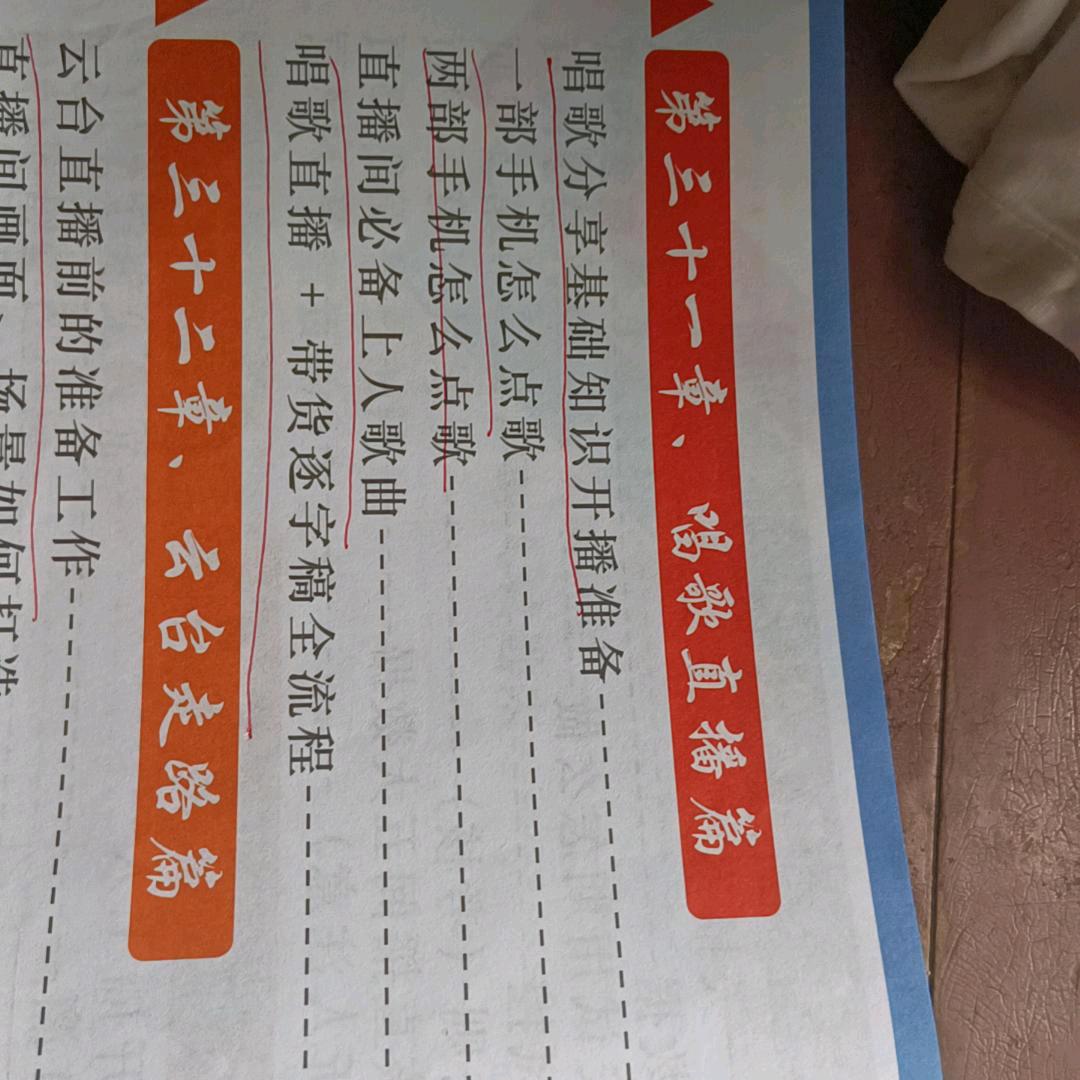 第三十一章、唱歌直播篇
唱歌分享基础知识开播准备
一部手机怎么点歌
两部手机怎么点歌
直播间必备上人歌曲
唱歌直播 + 带货逐字稿全流程
第三十二章、云台走路篇
云台直播前的准备工作
直播间画面、场景如何打造